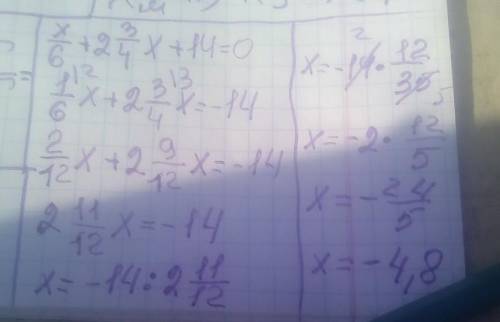 x/6 + 2 3/4 x + 14 = 0
1/6 x + 2 3/4 x = -14
2/12 x + 2 9/12 x = -14
2 11/12 x = -14
x = -14 : 2 11/12
x = -14 · 12/35
x = -2 · 12/5
x = -24/5
x = -4,8